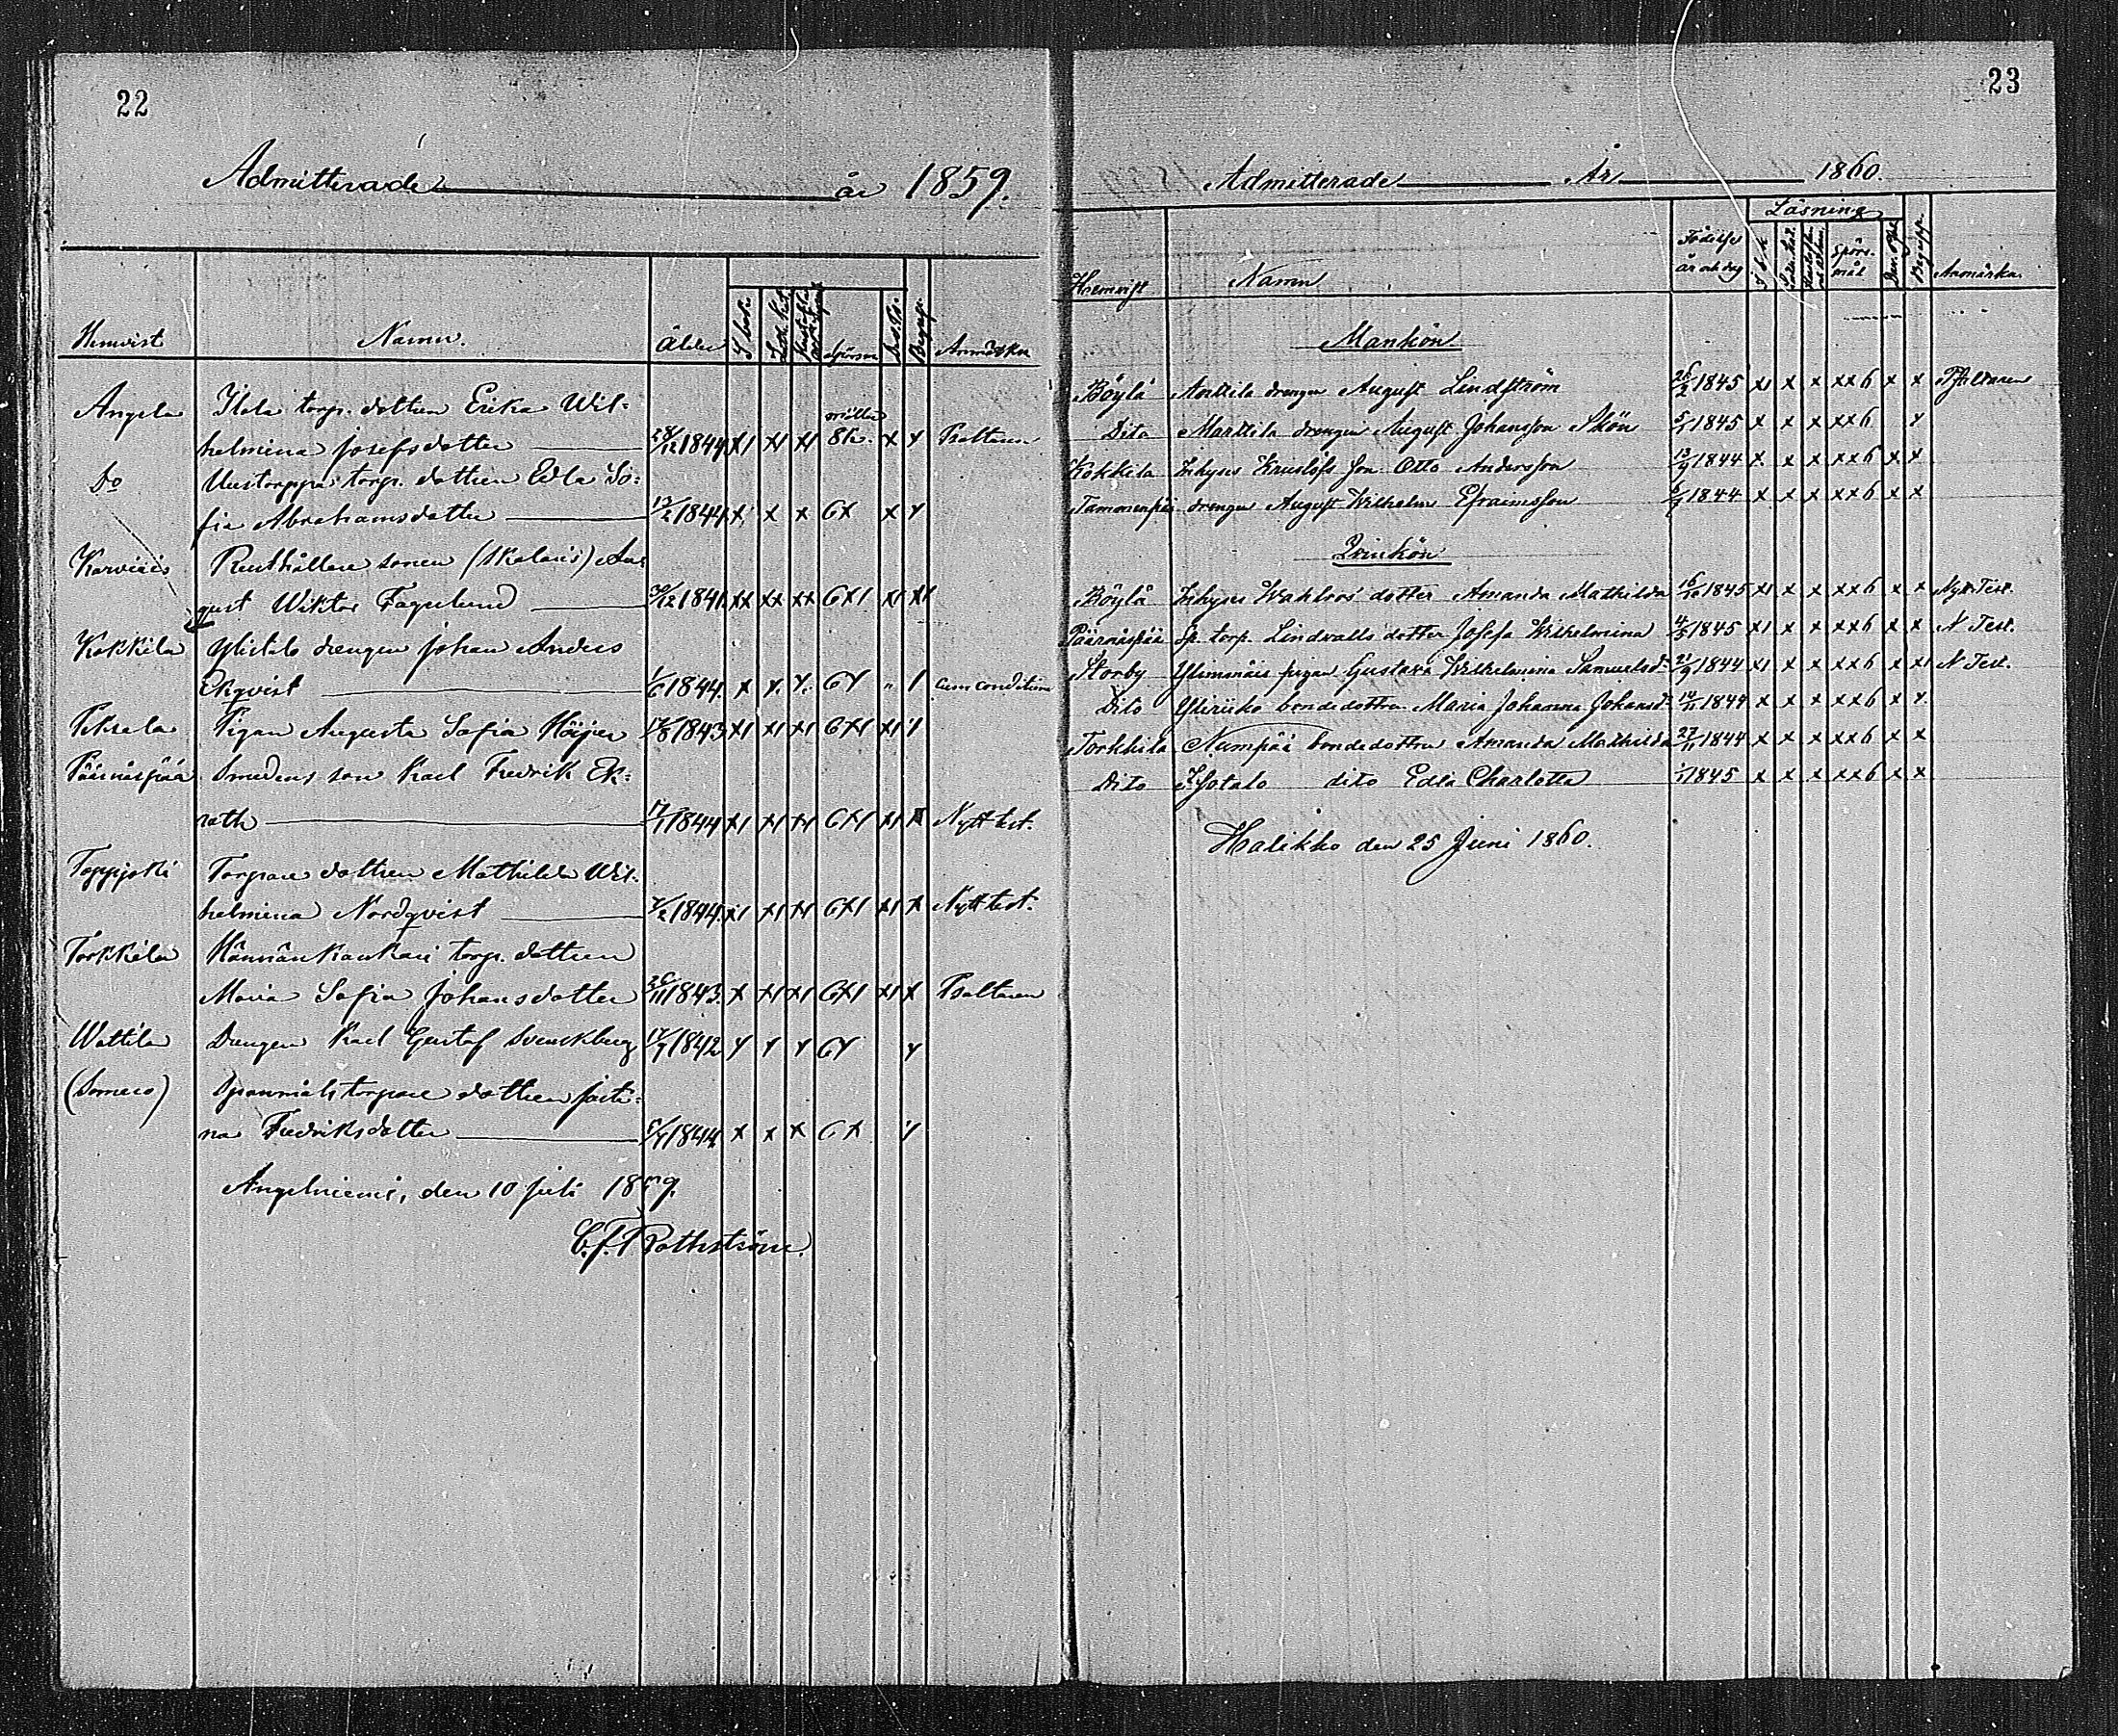 22
Admitterade år 1859.
Hemvist Namn. Ålder I bok. Luth. Kat. Spörsm Begrepp. Anmärkn
Angela Ilola torp. dottren Erika Wil=
helmina Josefsdotter 28/12 1844 Psaltaren
Do torp. dottren Edla So=
fia Abrahamsdotter 13/2 1844 x x x 6x x
Karviais Rusthållare sonen Au=
gust Wiktor Fagerlund 30/12 1841
Kokkila Ylistalo drengen Johan Anders
Ekqvist 1/6 1844. cum conditione
Peksala Pigan Augusta Sofia Höijer 1843
Päärnäspää Smedens son Karl Fredrik Ek=
roth 17/1 1844 Nytt test.
Toppjoki Torpare dottren Mathilda Wil=
helmina Nordqvist 1844 Nytt test.
Torkkila torp. dottren
Maria Sofia Johansdotter 26/11 1843. Psaltaren
Wattila Drengen Karl Gustaf Svenskberg 1842
(Somero) Spanmåls torpare dottren Justi=
na Fredriksdotter 1844 x x x 6x
Angelniemi, den 10 Juli 1859.
C. J. Rothström.
23
Admitterade År 1860.
Läsning
Hemvist Namn Födelse år och dag I bok Spörsmål Begrepp Anmärkn.
Mankön
Böylä Anttila drengen August Lindström 26/2 1845 x x xx6 x x Psaltaren
Dito Marttila drengen August Johansson Skön 5/1 1845 x x x xx6
Kokkila Inhyses son Otto Andersson 13/9 1844 x x x xx6 x x
Tammenpää drengen August Wilhelm Efraimsson 1844 x x x xx6 x x
Qvinkön
Böylä Inhyses Wahlroos dotter Amanda Mathilda 1845 x x xx6 x x Nytt Test.
Päärnäspää Sp. torp. Lindvalls dotter Josefa Wilhelmina 4/5 1845 x x xx6 x x N Test.
Storby Ylimmäis pigan Gustava Wilhelmina Samuelsd: 21/9 1844 x x xx6 x N Test.
Dito Yliriiko bondedottren Maria Johanna Johansd: 1844 x x x xx6 x x
Torkkila Numpää bondedottren Amanda Mathilda 27/11 1844 x x x xx6 x x
Dito Isotalo dito Edla Charlotta 1845 x x x xx6 x x
Halikko den 25 Juni 1860.